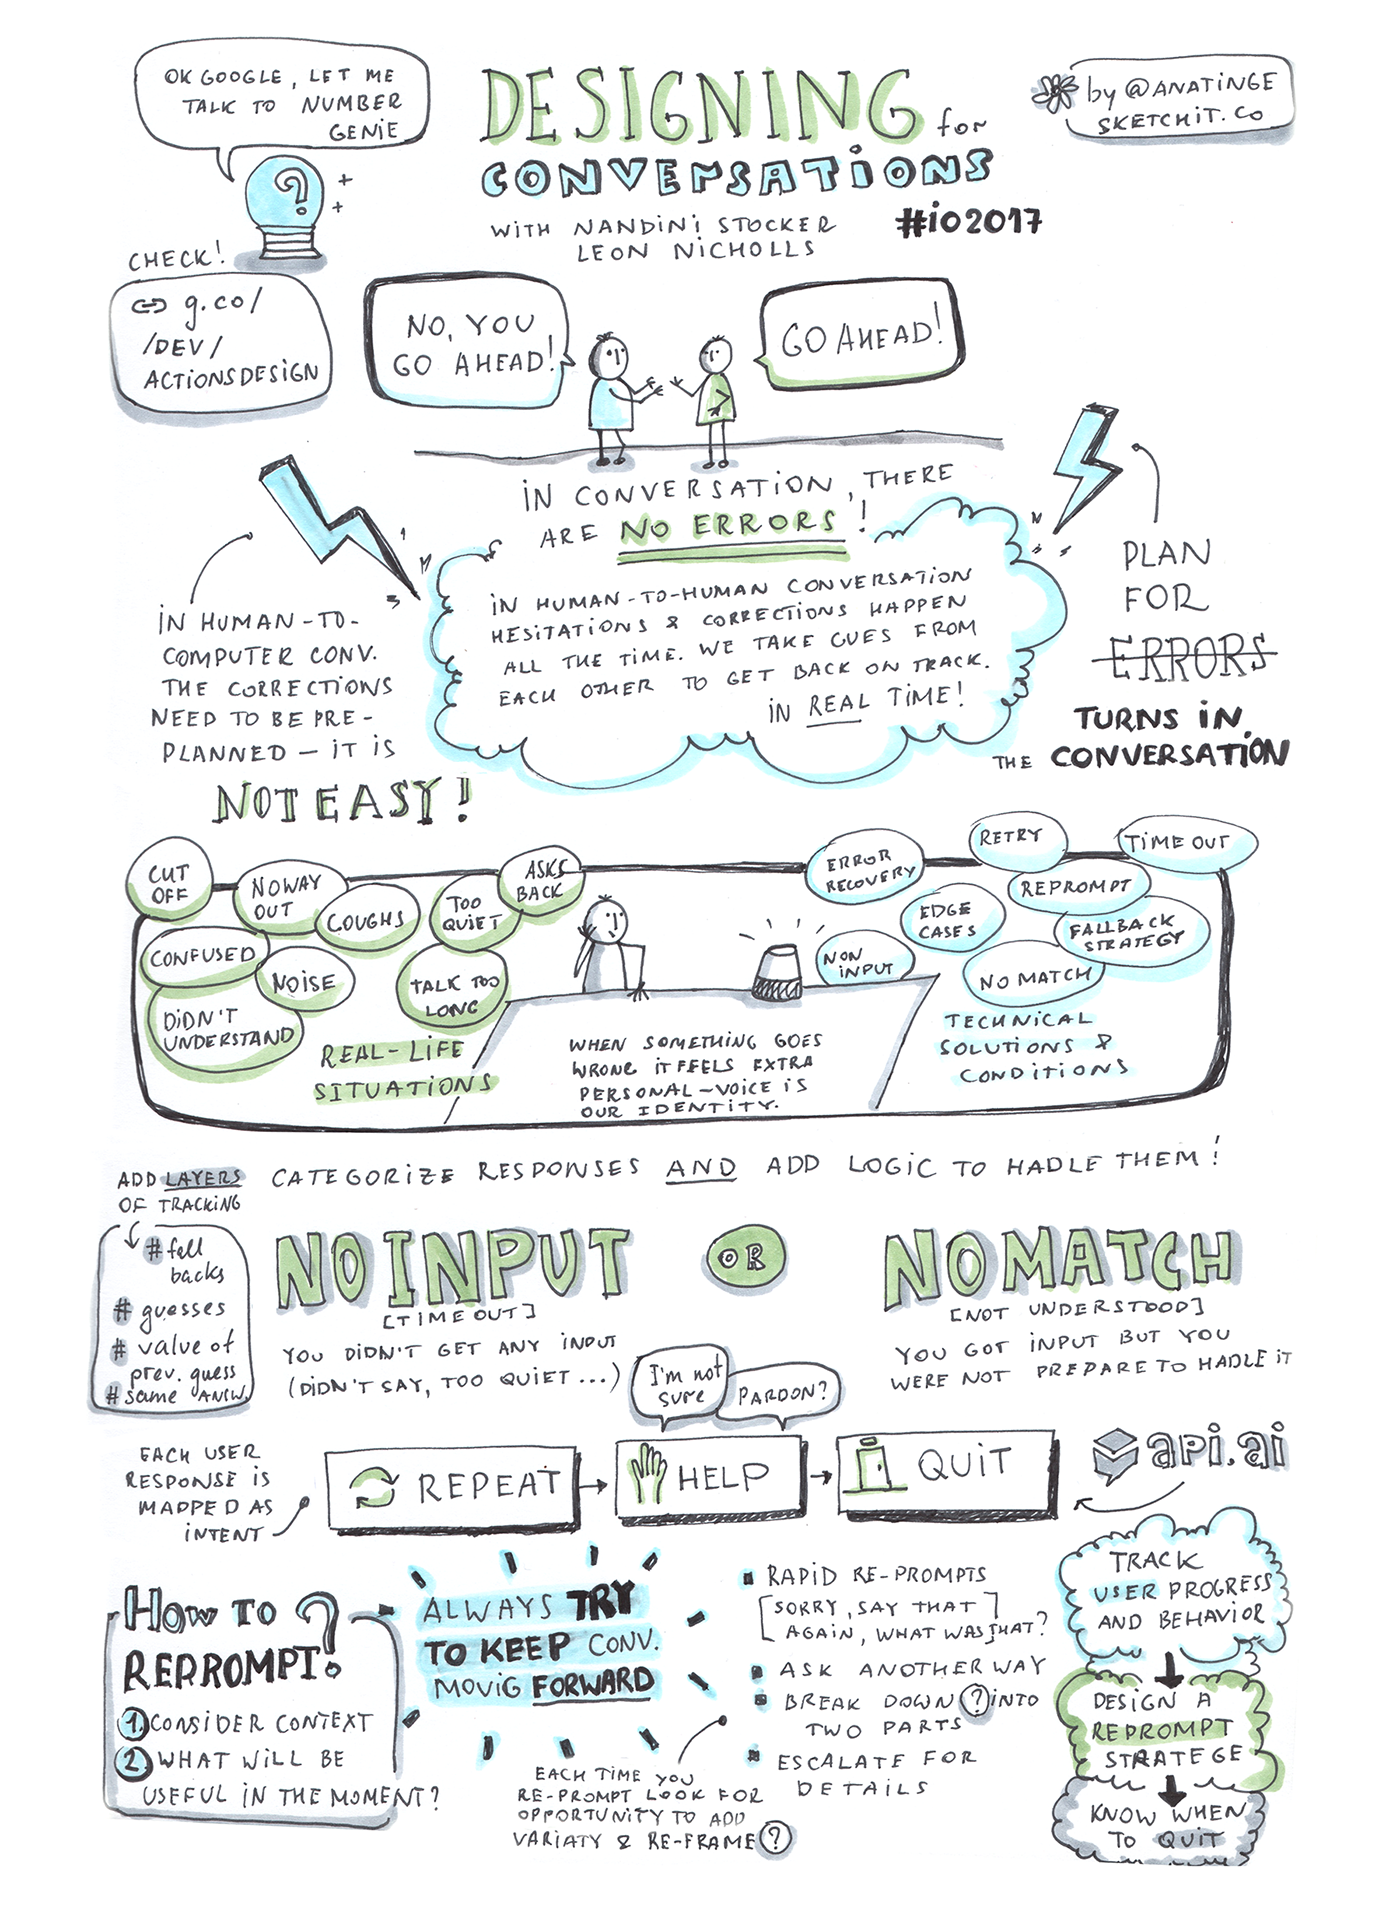 OK GOOGLE, LET ME
TALK TO NUMBER
GENIE
?
DESIGNING for
CONVERSATIONS
WITH NANDINI STOCKER
LEON NICHOLLS
#io2017
by @ANATINGE
SKETCHIT.CO
CHECK!
g.co/
/DEV/
ACTIONSDESIGN
NO, YOU
GO AHEAD!
GO AHEAD!
IN CONVERSATION, THERE
ARE NO ERRORS!
IN HUMAN-TO-HUMAN CONVERSATION
HESITATIONS & CORRECTIONS HAPPEN
ALL THE TIME. WE TAKE CUES FROM
EACH OTHER TO GET BACK ON TRACK.
IN REAL TIME!
IN HUMAN-TO-
COMPUTER CONV.
THE CORRECTIONS
NEED TO BE PRE-
PLANNED – IT IS
NOT EASY!
PLAN
FOR
ERRORS
TURNS IN
THE CONVERSATION
CUT
OFF
NO WAY
OUT
COUGHS
TOO
QUIET
ASKS
BACK
CONFUSED
NOISE
TALK TOO
LONG
DIDN'T
UNDERSTAND
REAL-LIFE
SITUATIONS
WHEN SOMETHING GOES
WRONG IT FEELS EXTRA
PERSONAL – VOICE IS
OUR IDENTITY.
ERROR
RECOVERY
RETRY
TIME OUT
REPROMPT
EDGE
CASES
FALLBACK
STRATEGY
NON
INPUT
NO MATCH
TECHNICAL
SOLUTIONS &
CONDITIONS
ADD LAYERS
OF TRACKING
# fall
backs
# guesses
# value of
prev. guess
# same ANSW.
CATEGORIZE RESPONSES AND ADD LOGIC TO HADLE THEM!
NO INPUT
[TIME OUT]
YOU DIDN'T GET ANY INPUT
(DIDN'T SAY, TOO QUIET...)
OR
NO MATCH
[NOT UNDERSTOOD]
YOU GOT INPUT BUT YOU
WERE NOT PREPARE TO HADLE IT
I'm not
sure
PARDON?
EACH USER
RESPONSE IS
MAPPED AS
INTENT
REPEAT
HELP
QUIT
api.ai
HOW TO
REPROMPT?
1. CONSIDER CONTEXT
2. WHAT WILL BE
USEFUL IN THE MOMENT?
ALWAYS TRY
TO KEEP CONV.
MOVIG FORWARD
EACH TIME YOU
RE-PROMPT LOOK FOR
OPPORTUNITY TO ADD
VARIATY & RE-FRAME ?
RAPID RE-PROMPTS
[SORRY, SAY THAT
AGAIN, WHAT WAS THAT?]
ASK ANOTHER WAY
BREAK DOWN ? INTO
TWO PARTS
ESCALATE FOR
DETAILS
TRACK
USER PROGRESS
AND BEHAVIOR
DESIGN A
REPROMPT
STRATEGE
KNOW WHEN
TO QUIT